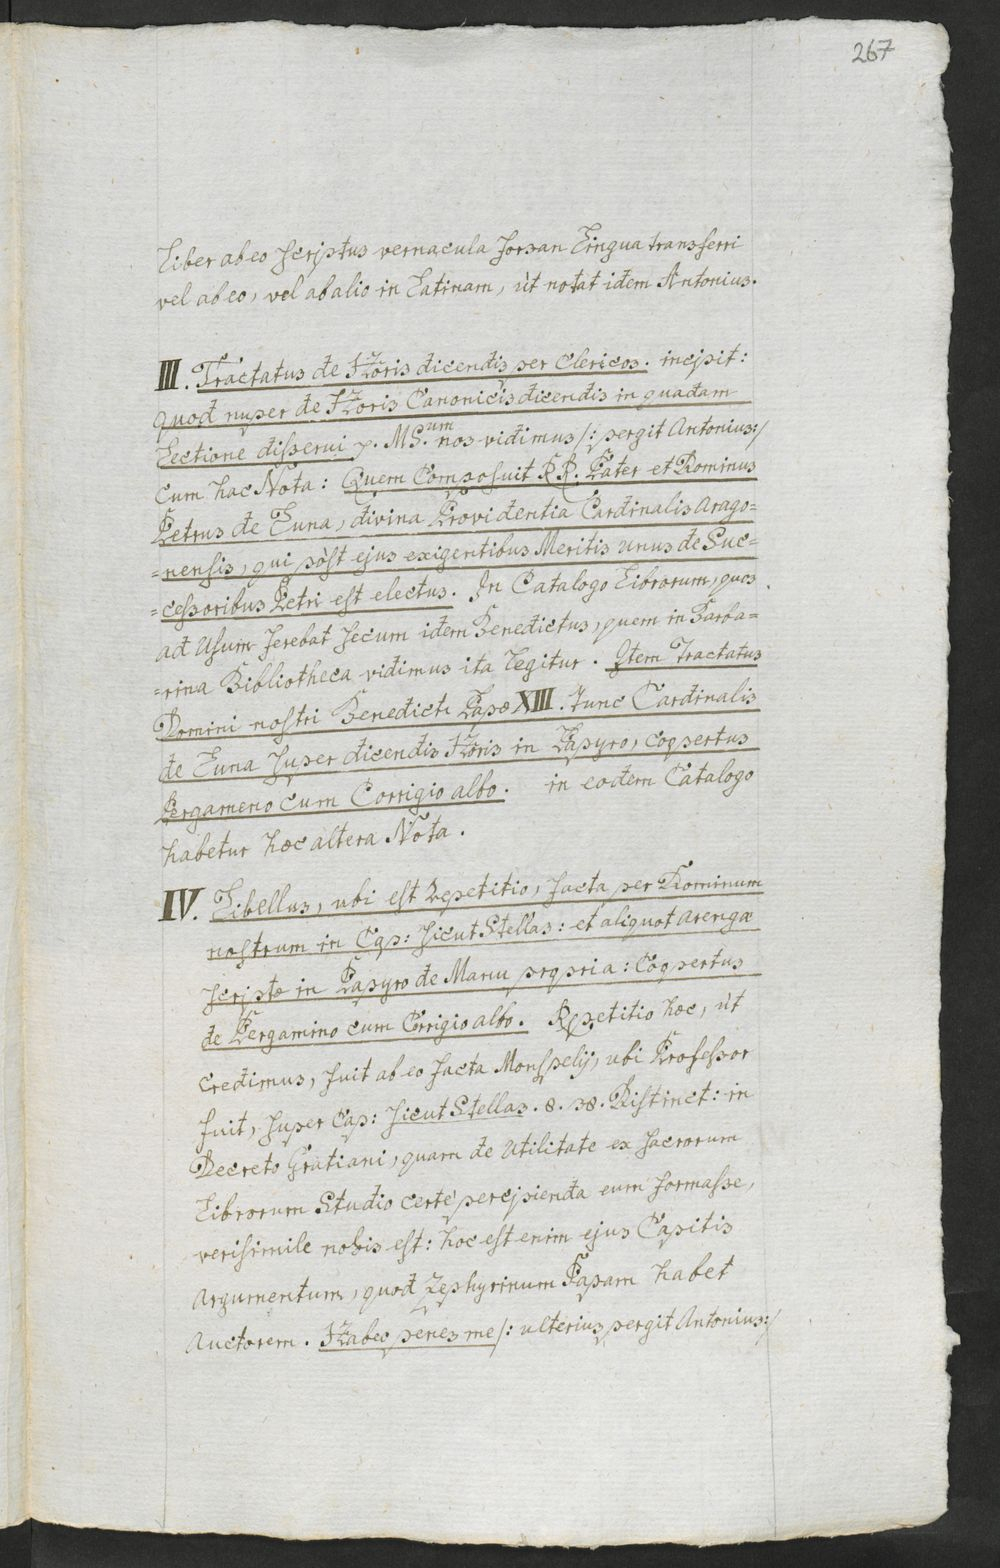 267
Liber ab eo scriptus vernacula forsan Lingua transferri
vel ab eo, vel ab alio in Latinam, ùt notat idem Antonius.
III. Tractatus de Horis dicendis per Clericos. incipit:
quod nuper de Horis Canonicis dicendis in quadam
Lectione disserui p. MS.um nos vidimus /: pergit Antonius :/
cum hac Nota: Quem Composuit RR. Pater et Dominus
Petrus de Luna, divina Providentia Cardinalis Arago=
=nensis, qui post ejus exigentibus Meritis unus de Suc=
=cessoribus Petri est electus. In Catalogo Librorum, quos
ad Usum ferebat secum idem Benedictus, quem in Barba=
=rina Bibliotheca vidimus ita legitur. Item Tractatus
Domini nostri Benedicti Papæ XIII. tunc Cardinalis
de Luna super dicendis Horis in Papyro, coopertus
Pergameno cum Corrigio albo. in eodem Catalogo
habetur hæc altera Nota.
IV. Libellus, ubi est Repetitio, facta per Dominum
nostrum in Cap: sicut Stellas: et aliquot arengæ
scripto in Papyro de Manu propria: Coopertus
de Pergamino cum Corrigio albo. Repetitio hæc, ùt
credimus, fuit ab eo facta Monspelij, ubi Professor
fuit, super Cap: sicut Stellas. 8. 38. Distinct: in
Decreto Gratiani, quam de utilitate ex sacrorum
Librorum Studio certe percipienda eum formasse,
verisimile nobis est: hoc est enim ejus Capitis
argumentum, quod Zephyrinum Papam habet
Auctorem. Habeo penes me /: ulterius pergit Antonius :/